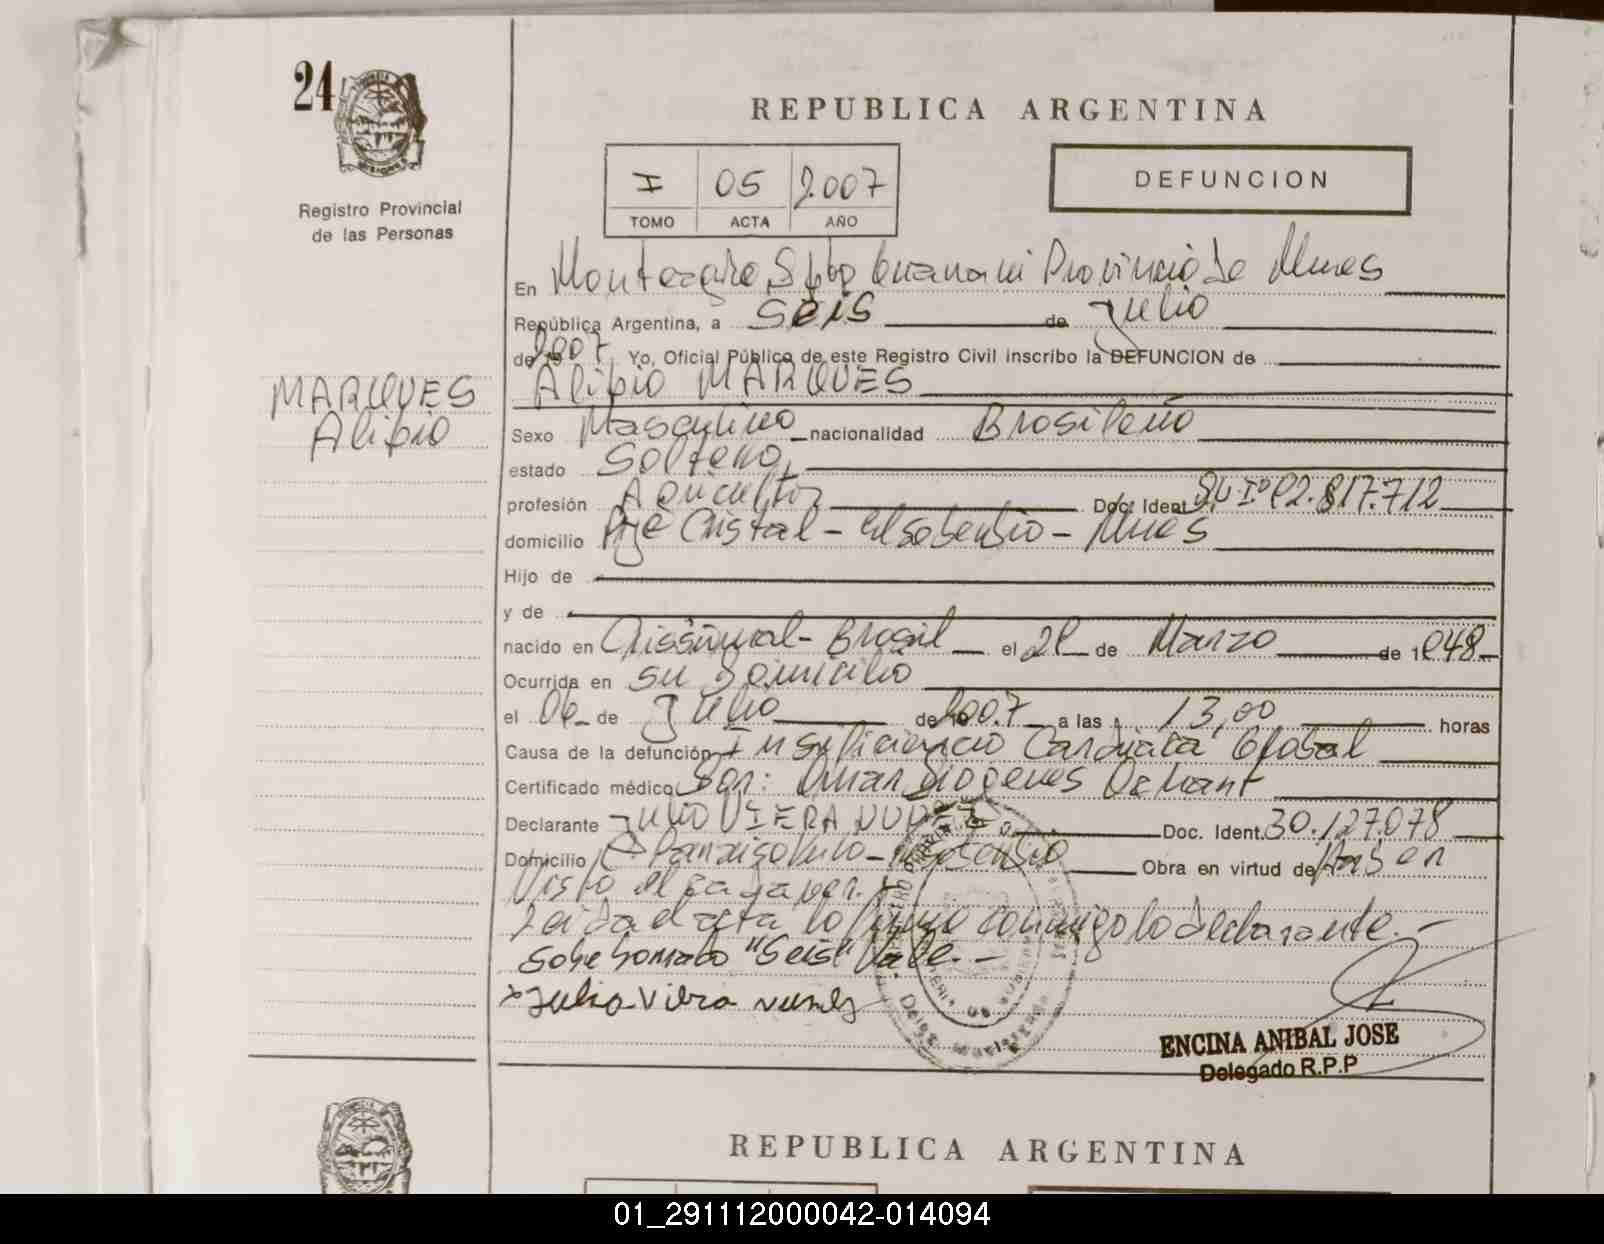 24
Registro Provincial
de las Personas
REPUBLICA ARGENTINA
I 05 2.007
TOMO ACTA AÑO
DEFUNCION
En Provincia de Mnes
República Argentina, a SEIS de Julio
de 2007 Yo, Oficial Público de este Registro Civil inscribo la DEFUNCION de
Alipio MARQUES
MARQUES
Alipio
Sexo Masculino nacionalidad Brasileño
estado Soltero
profesión Agricultor Doc. Ident. 92.817.712
domicilio Pje Cristal - El soberbio - Mnes
Hijo de
y de
nacido en Crissiumal - Brasil el de Marzo de 1948
Ocurrida en su Domicilio
el 06 de Julio de 2007 a las 13,00 horas
Causa de la defunción Insuficiencia Cardiaca Global
Certificado médico Omar Diogenes
Declarante Julio VIERA NUNEZ Doc. Ident. 30.127.078
Domicilio Obra en virtud de Haber
Visto el cadaver.
Leida el acta la firma conmigo la declarante. -
Sobe borrado "Seis" Vale. -
x Julio Viera nunes
ENCINA ANIBAL JOSE
Delegado R.P.P
REPUBLICA ARGENTINA
01_291112000042-014094